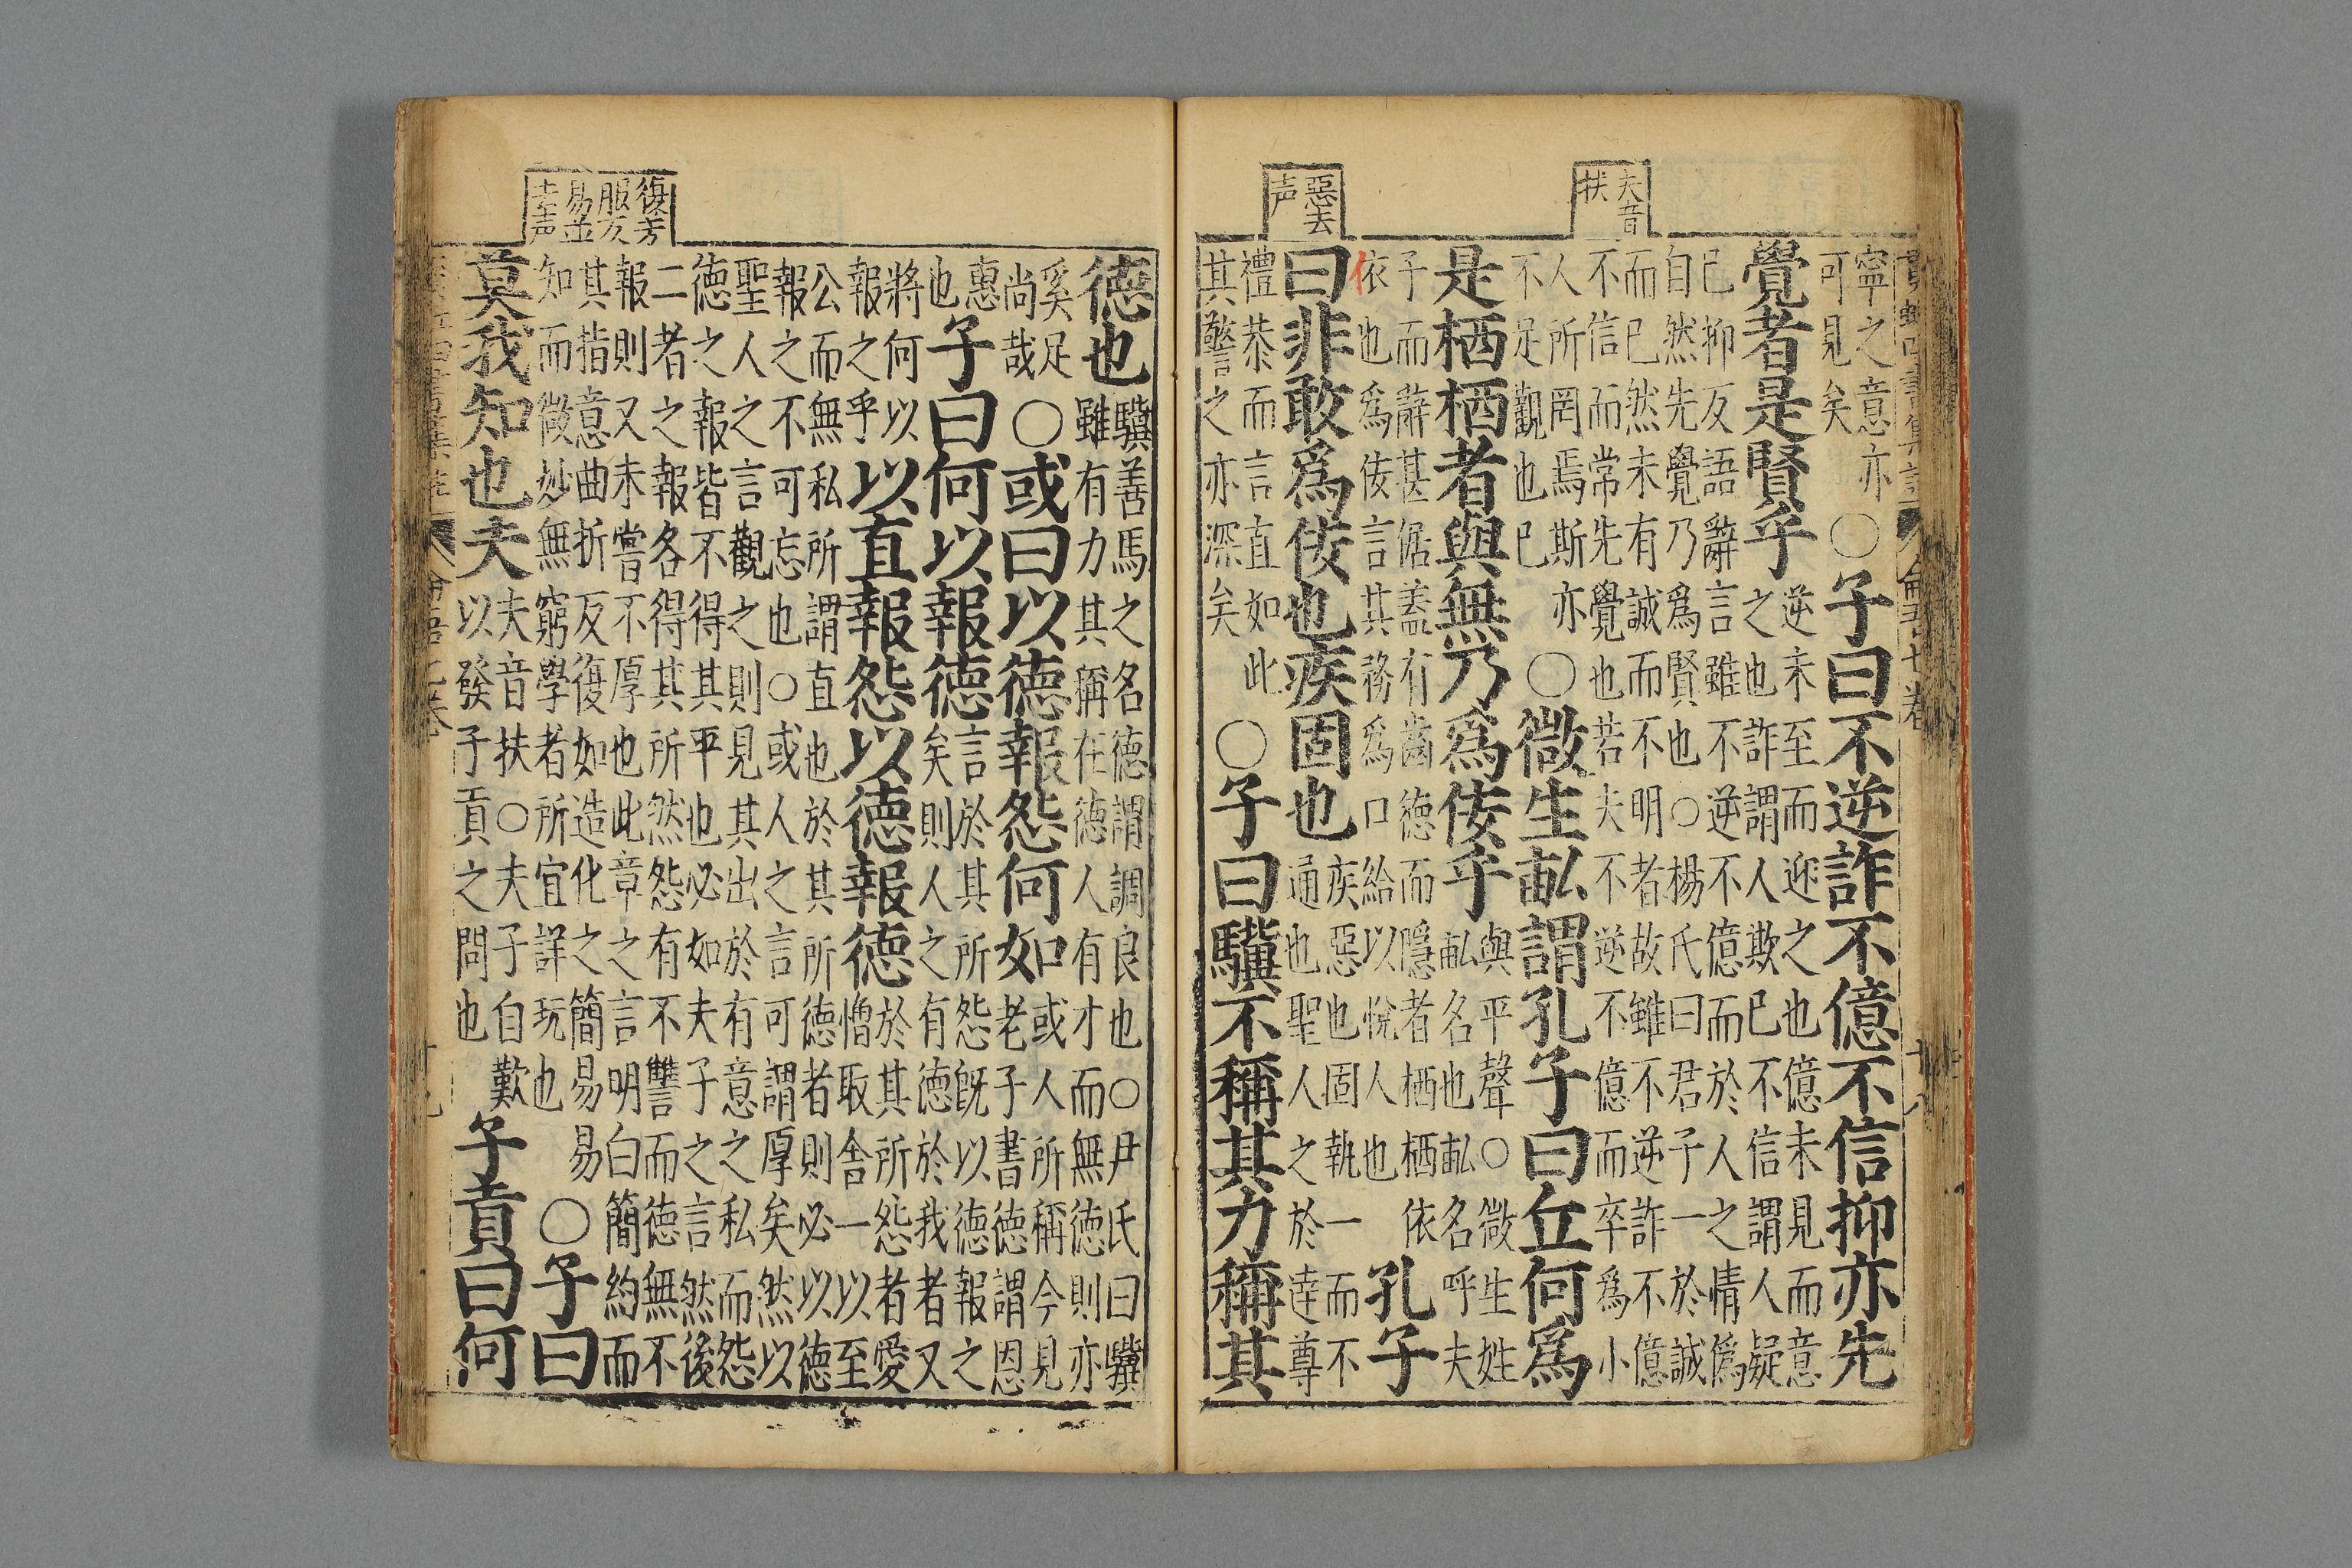 夫音
扶
寧之意亦
可見矣
○子曰不逆詐不億不信抑亦先
覺者是賢乎
逆未至而迎之也億未見而意
之也詐謂人欺已不信謂人疑
已抑反語辭言雖不逆不億而於人之情僞
自然先覺乃爲賢也○楊氏曰君子一於誠
而已然未有誠而不明者故雖不逆詐不億
不信而常先覺也若夫不逆不億而卒爲小
人所罔焉斯亦
不足觀也已
○微生畝謂孔子曰丘何爲
是栖栖者與無乃爲佞乎
與平聲○微生姓
畝名也畝名呼夫
子而辭甚倨蓋有齒德而隱者栖栖依
依也爲佞言其務爲口給以悅人也
孔子
惡去
声
曰非敢爲佞也疾固也
疾惡也固執一而不
通也聖人之於達尊
禮恭而言直如此
其警之亦深矣
○子曰驥不稱其力稱其
德也
驥善馬之名德謂調良也○尹氏曰驥
雖有力其稱在德人有才而無德則亦
奚足
尚哉
○或曰以德報怨何如
或人所稱今見
老子書德謂恩
惠
也
子曰何以報德
言於其所怨旣以德報之
矣則人之有德於我者又
將何以
報之乎
以直報怨以德報德
於其所怨者愛
憎取舍一以至
公而無私所謂直也於其所德者則必以德
報之不可忘也○或人之言可謂厚矣然以
聖人之言觀之則見其出於有意之私而怨
德之報皆不得其平也必如夫子之言然後
二者之報各得其所然怨有不讐而德無不
報則又未嘗不厚也此章之言明白簡約而
復芳
服反
易並
去声
其指意曲折反復如造化之簡易易
知而微妙無窮學者所宜詳玩也
○子曰
莫我知也夫
夫音扶○夫子自歎
以發子貢之問也
子貢曰何